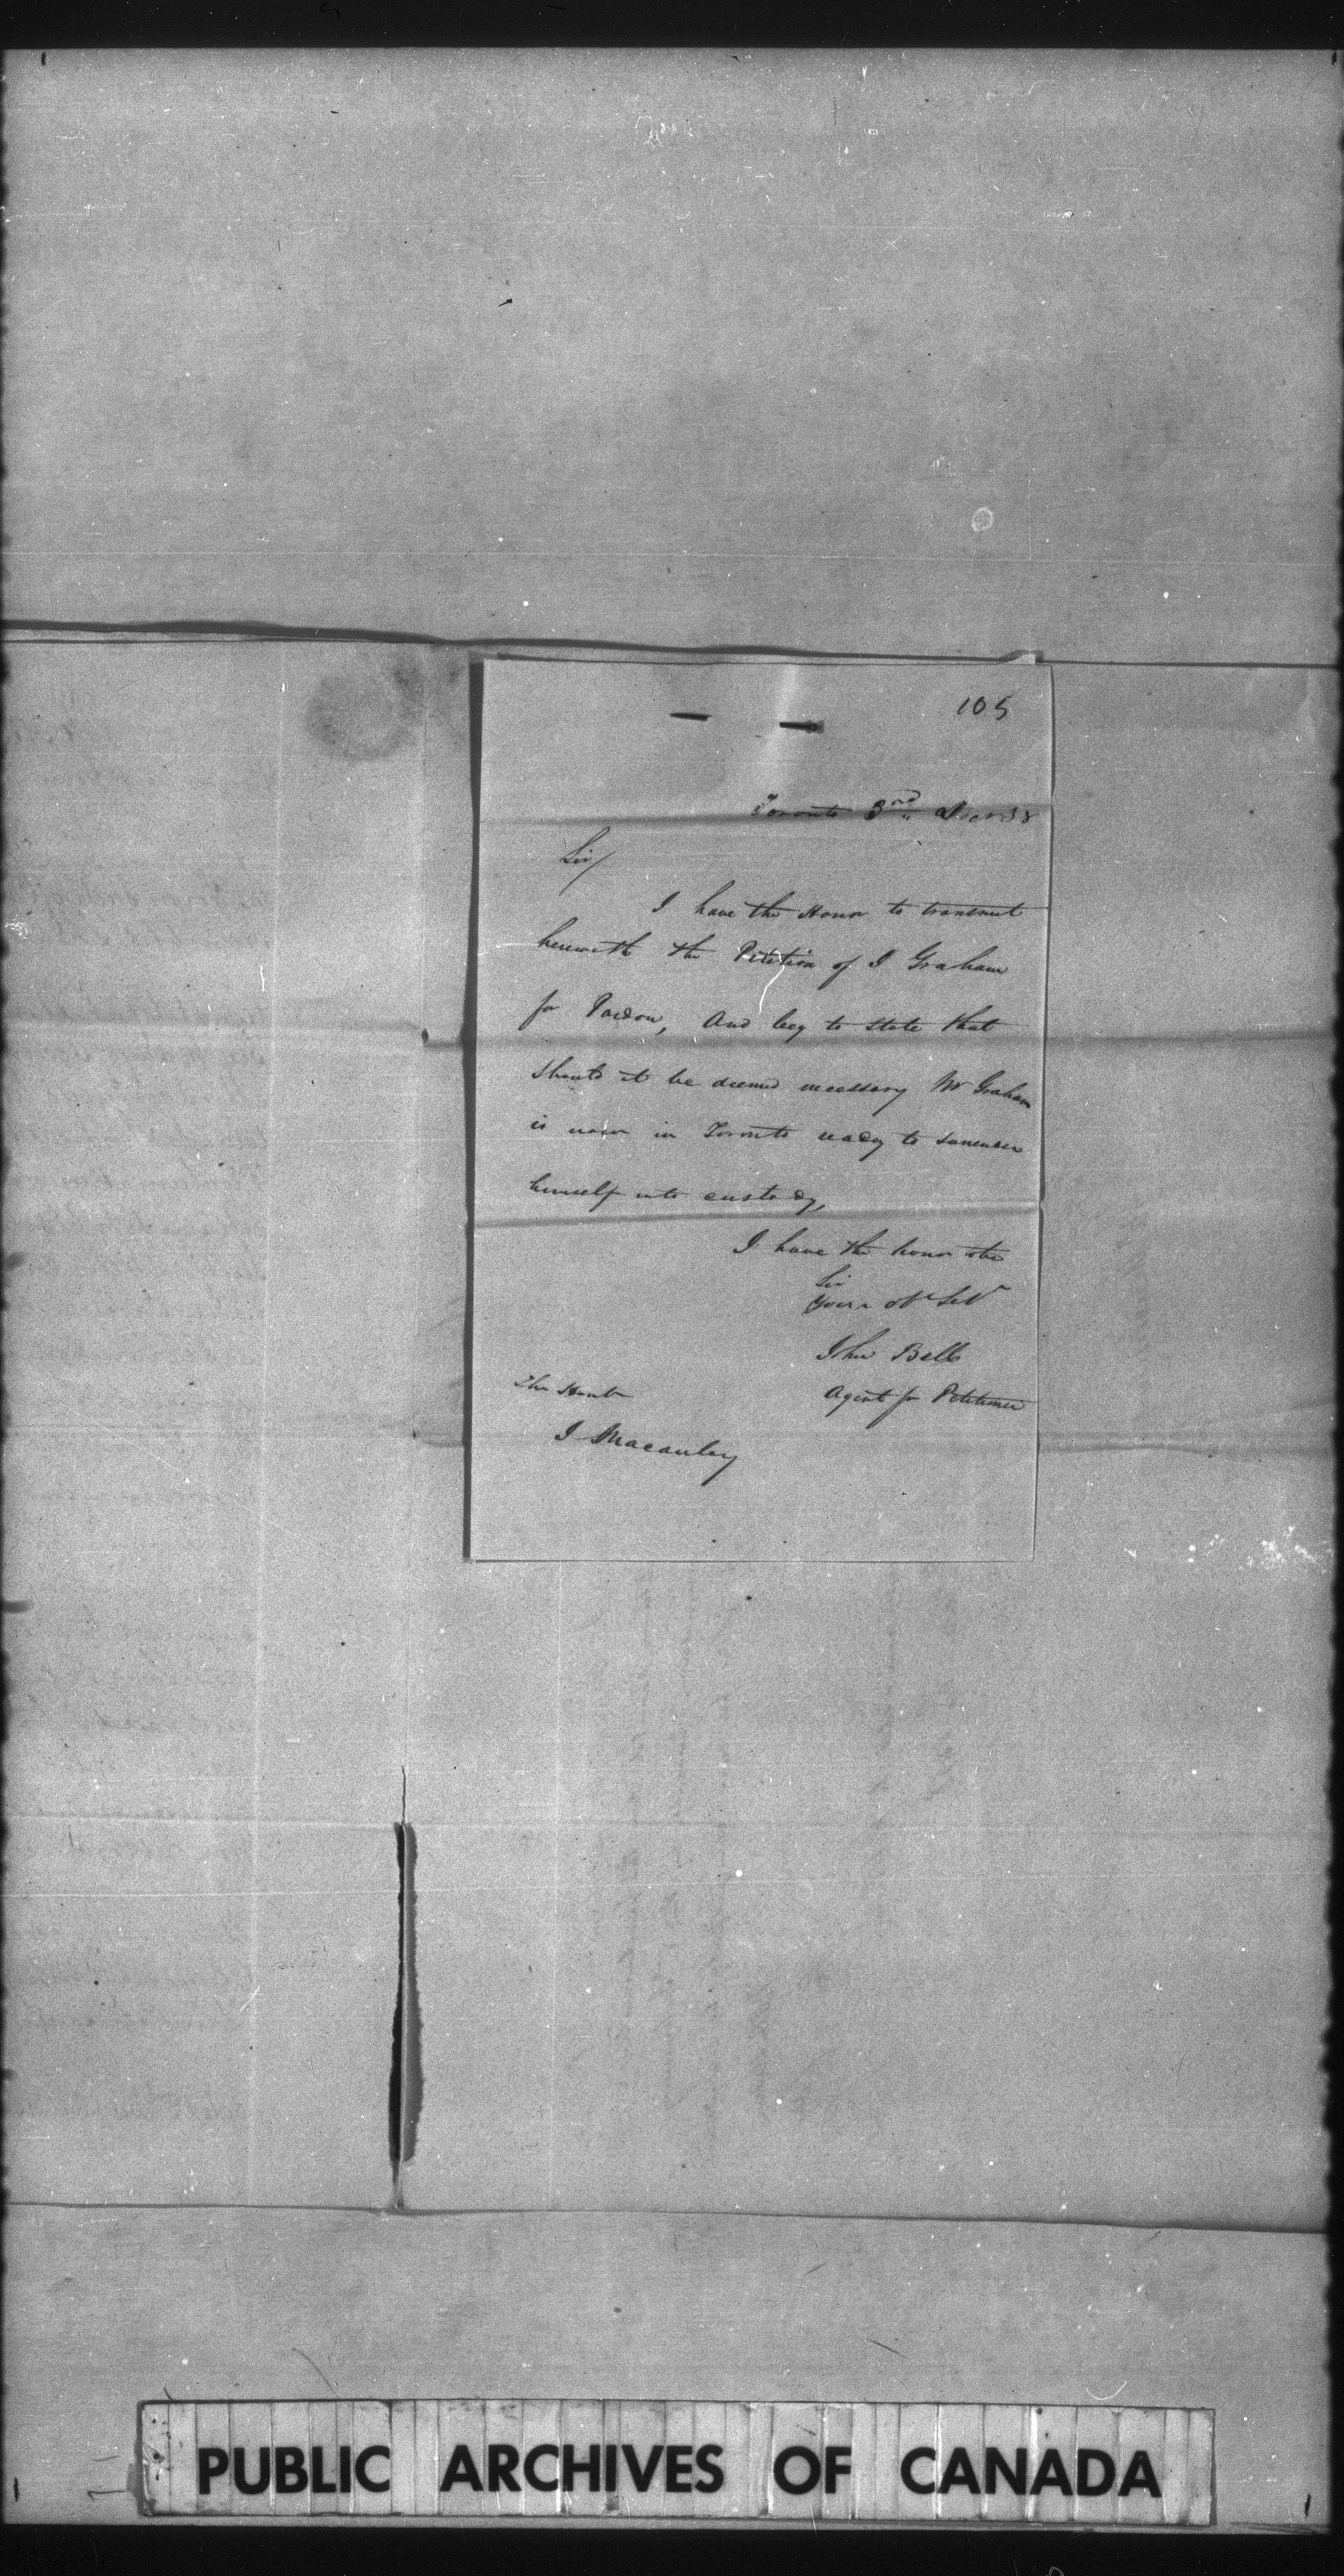 105
Toronto 3rd Decr 38
Sir/
I have the Honor to transmit
herewith the Petition of J Graham
for Pardon, And beg to state that
should it be deemed necessary Mr Graham
is now in Toronto ready to surrender
himself into custody,
I have the honor to be
Sir
Your Obt Servt
John Bell
Agent for Petitioner
The Honble
J Macaulay
PUBLIC ARCHIVES OF CANADA